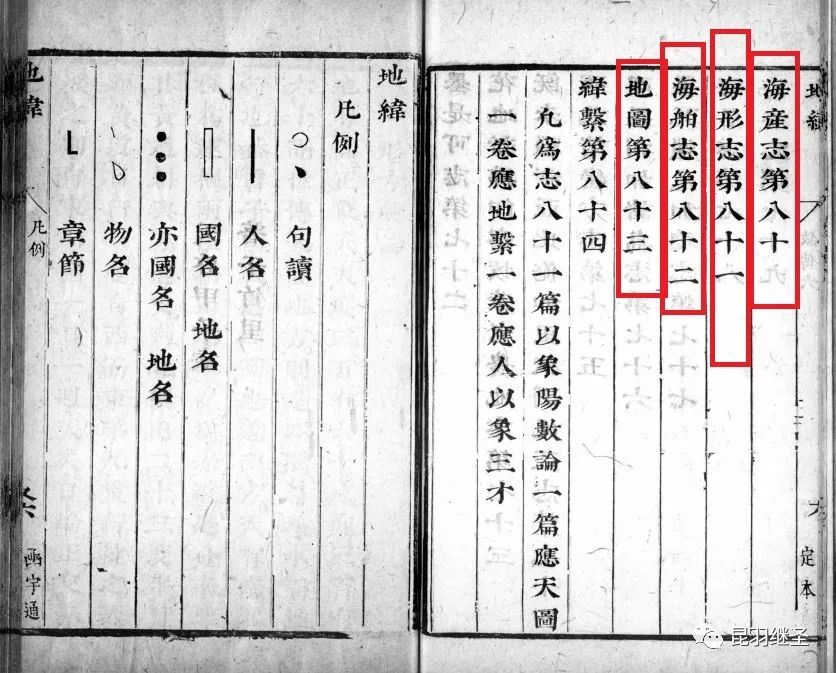 地緯
定本
海産志第八十
海形志第八十一
海舶志第八十二
地圖第八十三
緯繫第八十四
凡爲志八十一篇以象陽數論一篇應天圖
一卷應地繫一卷應人以象三才
地緯
凡例
句讀
人名
國名 地名
亦國名 地名
物名
章節
地緯
凡例
函宇通
昆羽继圣